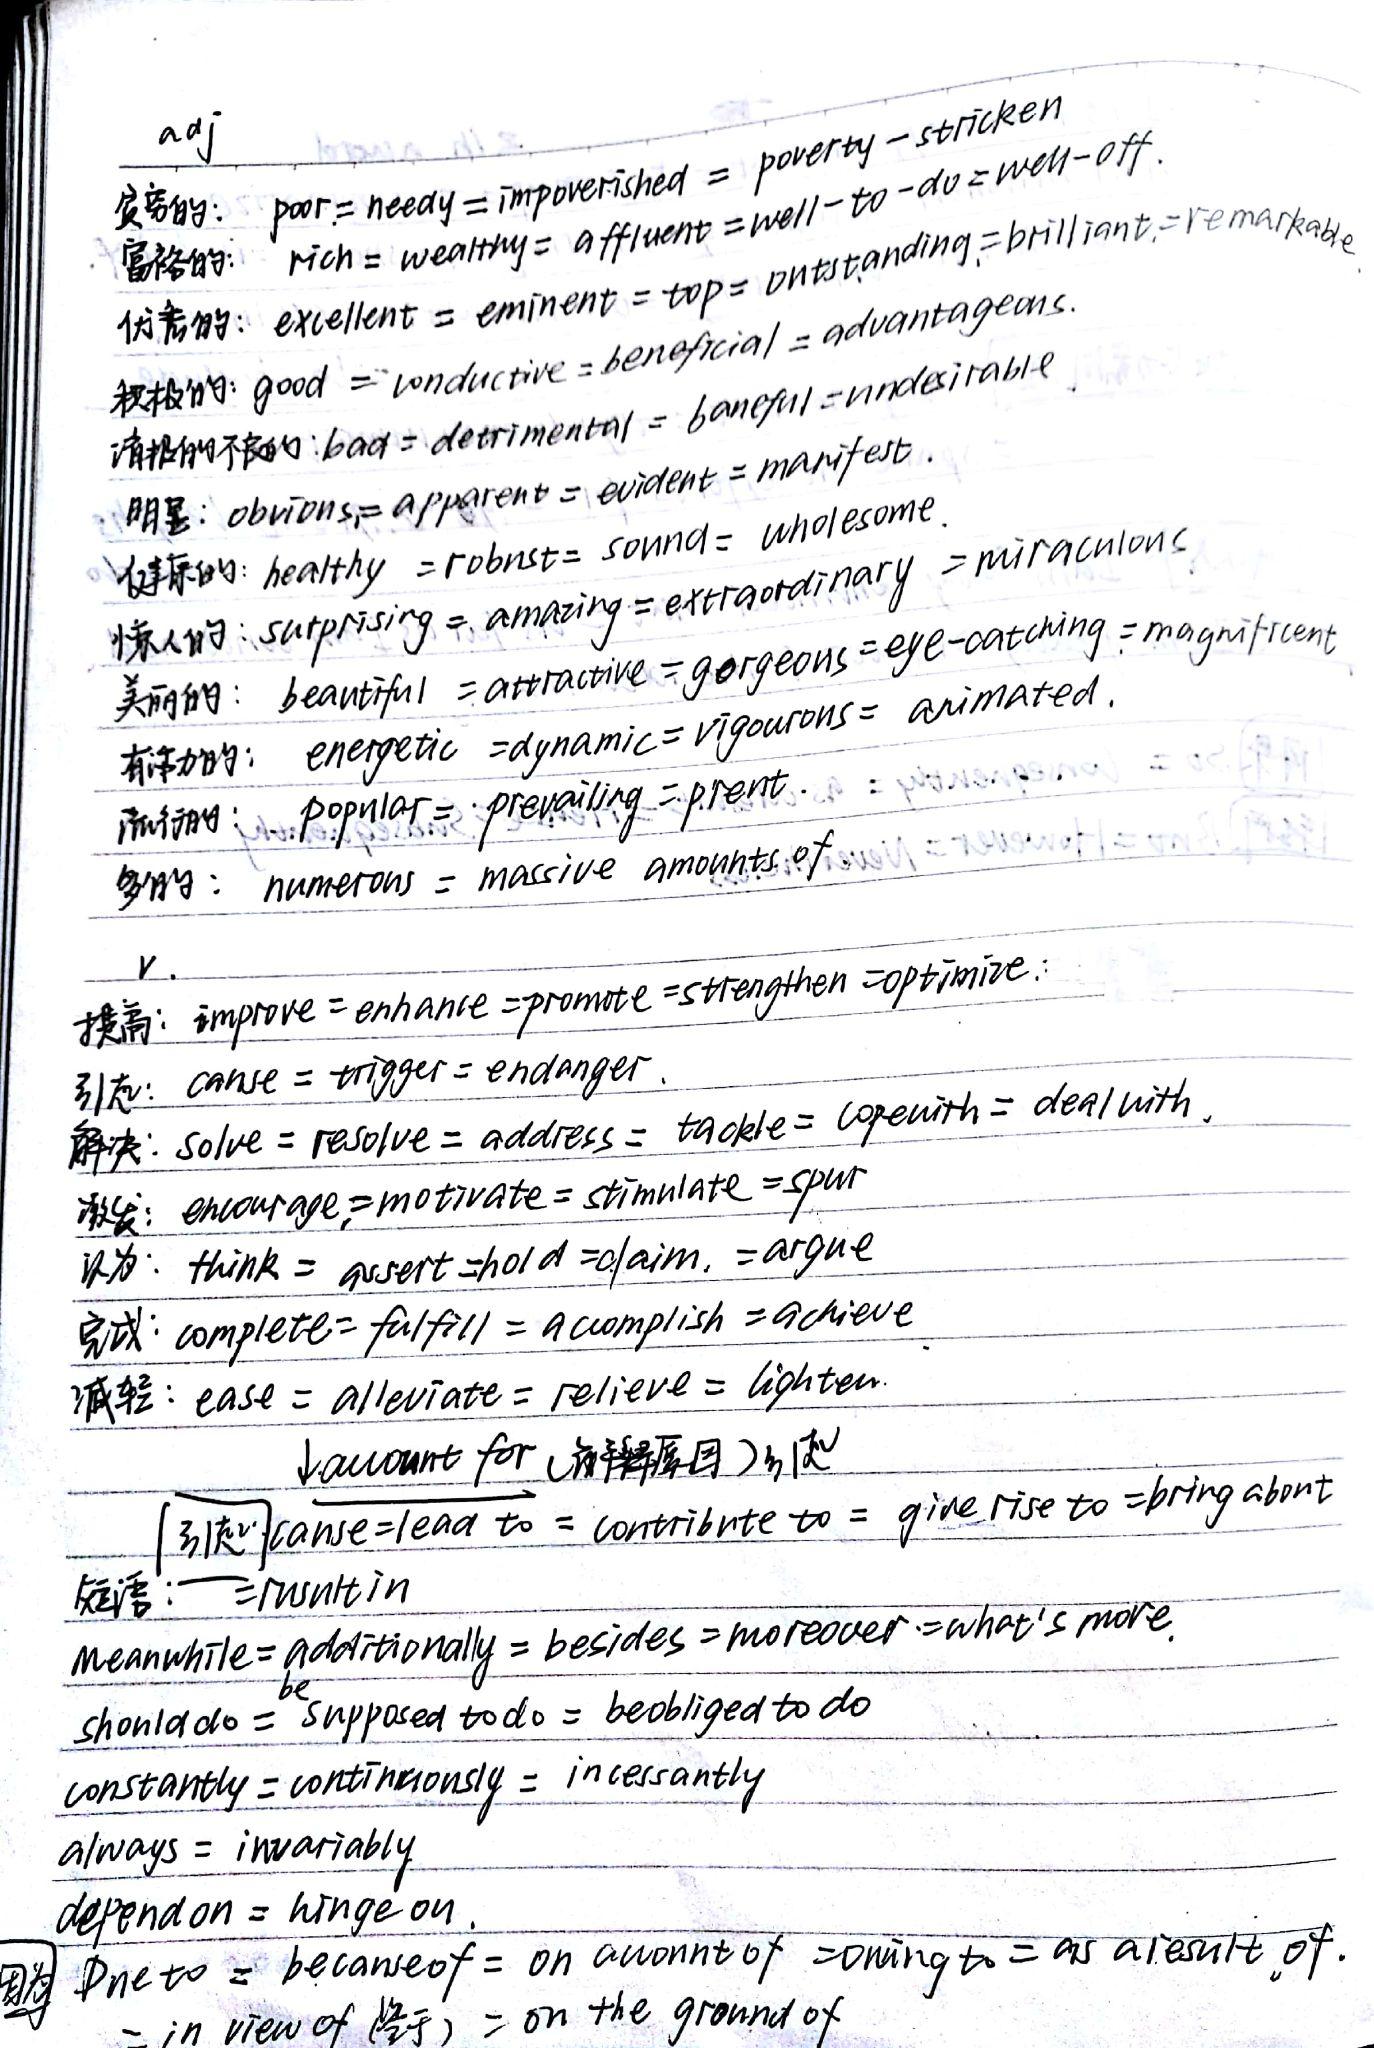 adj
贫穷的: poor = needy = impoverished = poverty-stricken
富裕的: rich = wealthy = affluent = well-to-do = well-off.
优秀的: excellent = eminent = top = outstanding = brilliant = remarkable
积极的: good = conductive = beneficial = advantageous.
消极的不良的: bad = detrimental = baneful = undesirable
明显: obvious = apparent = evident = manifest.
健康的: healthy = robust = sound = wholesome.
惊人的: surprising = amazing = extraordinary = miraculous
美丽的: beautiful = attractive = gorgeous = eye-catching = magnificent
有活力的: energetic = dynamic = vigourous = animated.
流行的: popular = prevailing = prent.
多的: numerous = massive amounts of
v.
提高: improve = enhance = promote = strengthen = optimize.
引起: cause = trigger = endanger.
解决: solve = resolve = address = tackle = cope with = deal with.
激发: encourage = motivate = stimulate = spur
认为: think = assert = hold = claim. = argue
完成: complete = fulfill = accomplish = achieve
减轻: ease = alleviate = relieve = lighten.
↓account for (解释原因)引起
[引起] cause = lead to = contribute to = give rise to = bring about
短语: = result in
Meanwhile = additionally = besides = moreover = what's more.
should do = be supposed to do = be obliged to do
constantly = continuously = incessantly
always = invariably
depend on = hinge on.
因为 Due to = because of = on account of = owing to = as a result of.
= in view of (鉴于) = on the ground of